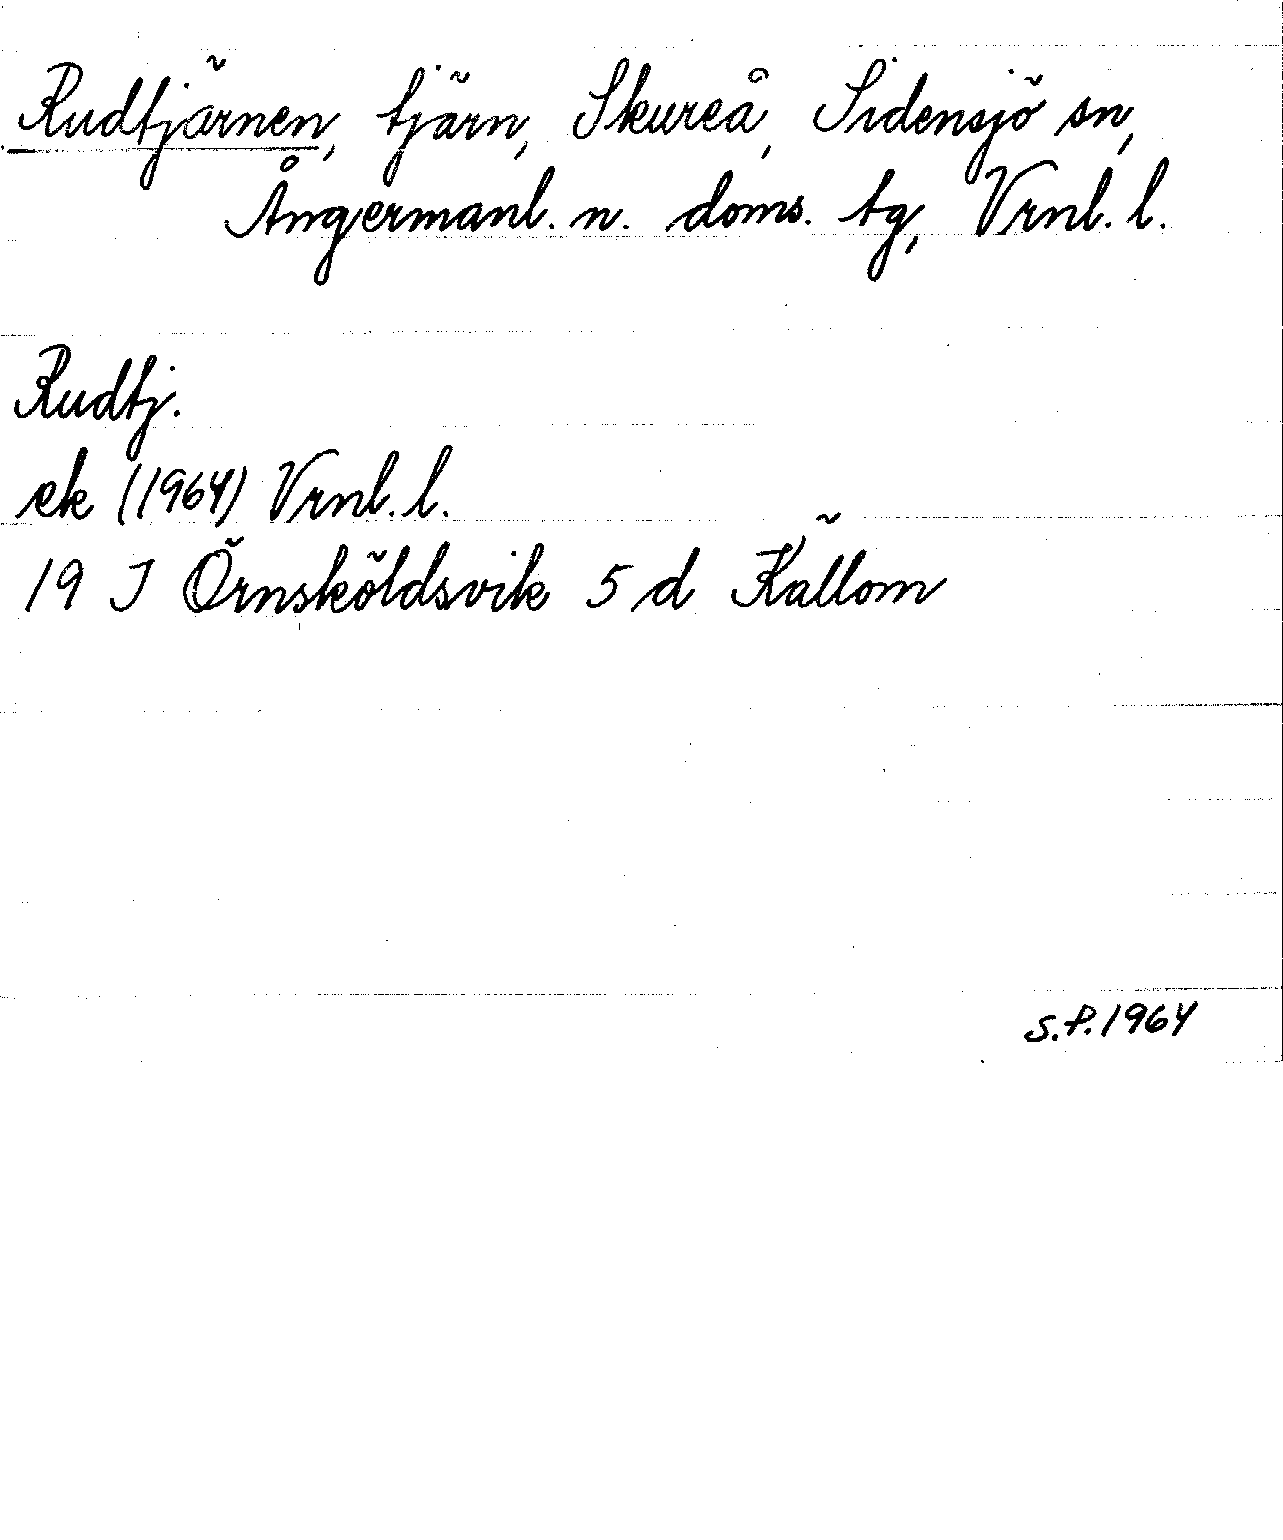 Rudtjärnen, tjärn, Skureå, Sidensjö sn,
Ångermanl. n. doms. tg, Vrnl. l.
Rudtj.
ek (1964) Vrnl. l.
19 J Örnsköldsvik 5 d Källom
S.P. 1964